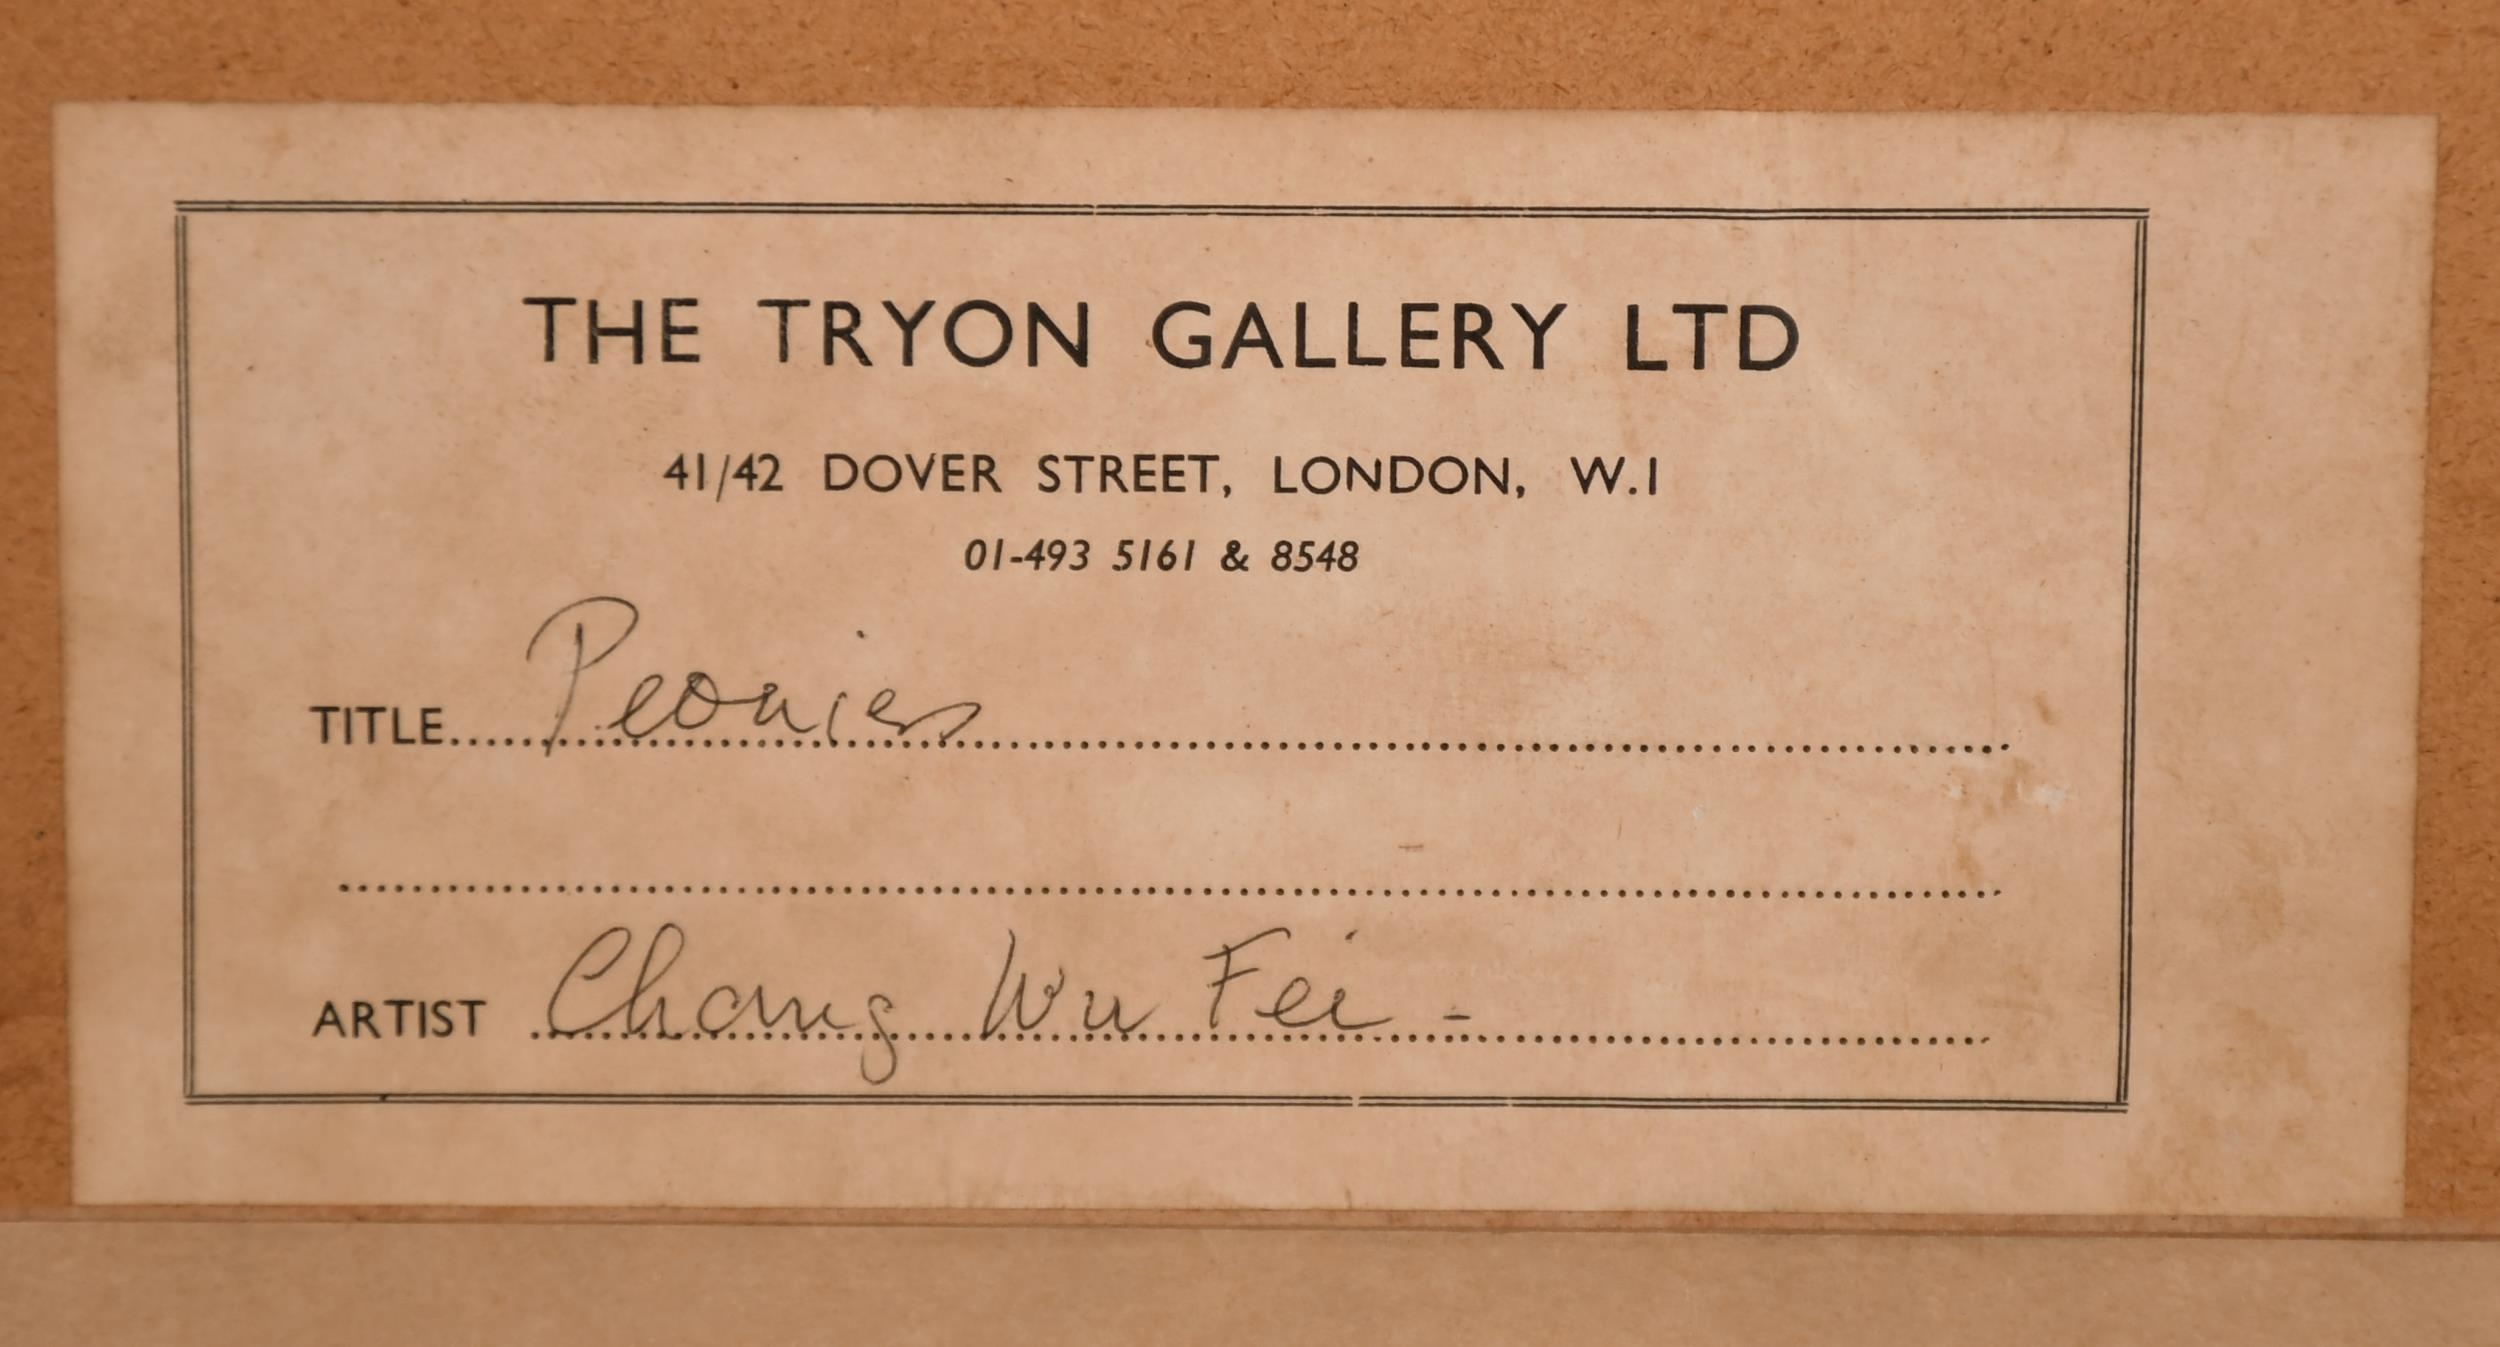 THE TRYON GALLERY LTD
41/42 DOVER STREET, LONDON, W.1
01-493 5161 & 8548
TITLE Peonies
ARTIST Chang Wu Fei -